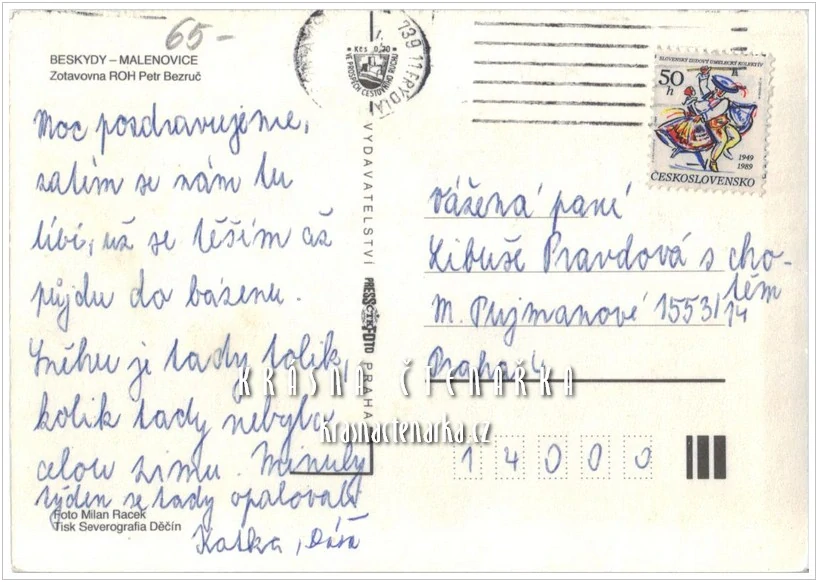 65-
BESKYDY – MALENOVICE
Zotavovna ROH Petr Bezruč
Moc pozdravujeme,
zatím se nám tu
líbí, už se těším až
půjdu do bazénu.
Sněhu je tady tolik,
kolik tady nebylo
celou zimu. Minulý
týden se tady opalovali
Katka, Dáša
Foto Milan Racek
Tisk Severografia Děčín
VYDAVATELSTVÍ PRESSFOTO PRAHA
Kčs 0,20
VE PROSPĚCH CESTOVNÍHO RUCHU
739 11 FRÝDLA
SLOVENSKÝ ĽUDOVÝ UMELECKÝ KOLEKTÍV
50
h
1949
1989
ČESKOSLOVENSKO
Vážená paní
Libuše Pravdová s cho-
těm
M. Pujmanové 1553/14
Praha 4
14000
KRÁSNÁ ČTENÁŘKA
krasnactenarka.cz